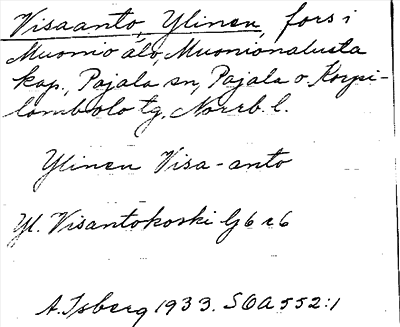 Visaanto, Ylinen, fors i
Muonio älv, Muonionalusta
kap., Pajala sn, Pajala o. Korpi-
lombolo tg, Norrb. l.
Ylinen Visa-anto
Yl. Visantokoski Gj6 r6
A. Isberg 1933. SOA 552:1